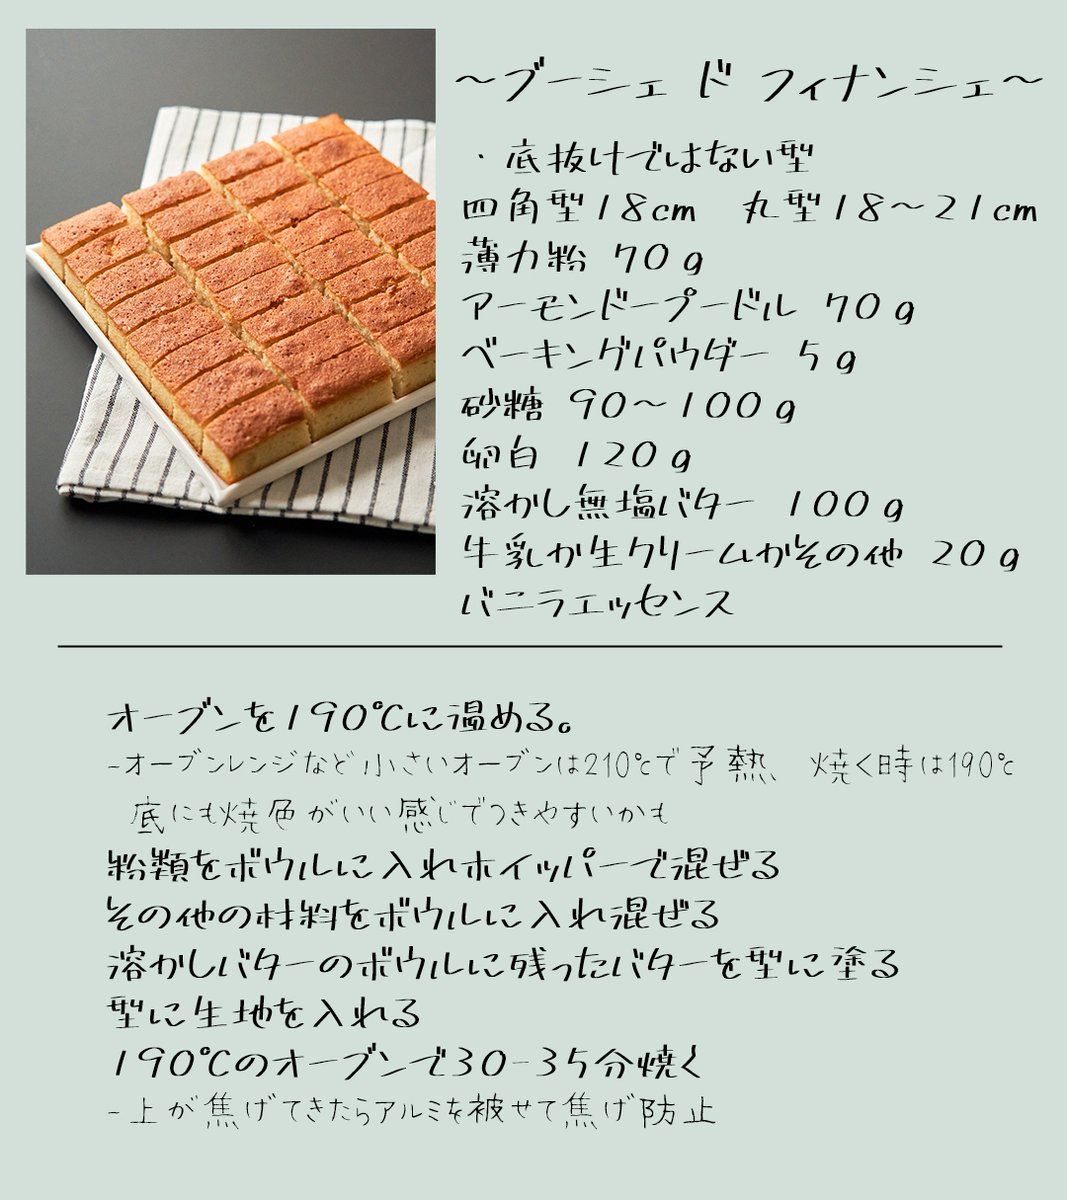 ～ブーシェ ド フィナンシェ～
・底抜けではない型
四角型18cm　丸型18～21cm
薄力粉 70g
アーモンドープードル 70g
ベーキングパウダー 5g
砂糖 90～100g
卵白 120g
溶かし無塩バター 100g
牛乳か生クリームかその他 20g
バニラエッセンス
オーブンを190℃に温める。
-オーブンレンジなど小さいオーブンは210℃で予熱、焼く時は190℃
底にも焼色がいい感じでつきやすいかも
粉類をボウルに入れホイッパーで混ぜる
その他の材料をボウルに入れ混ぜる
溶かしバターのボウルに残ったバターを型に塗る
型に生地を入れる
190℃のオーブンで30-35分焼く
-上が焦げてきたらアルミを被せて焦げ防止